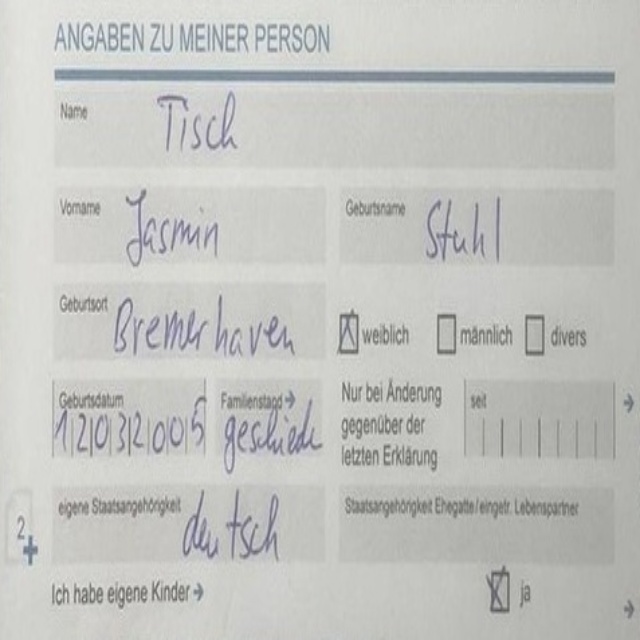 ANGABEN ZU MEINER PERSON
Name Tisch
Vorname Jasmin
Geburtsname Stuhl
Geburtsort Bremerhaven
weiblich männlich divers
Geburtsdatum 12032005
Familienstand geschieden
Nur bei Änderung
gegenüber der
letzten Erklärung
seit
eigene Staatsangehörigkeit deutsch
Staatsangehörigkeit Ehegatte/eingetr. Lebenspartner
2
Ich habe eigene Kinder
ja